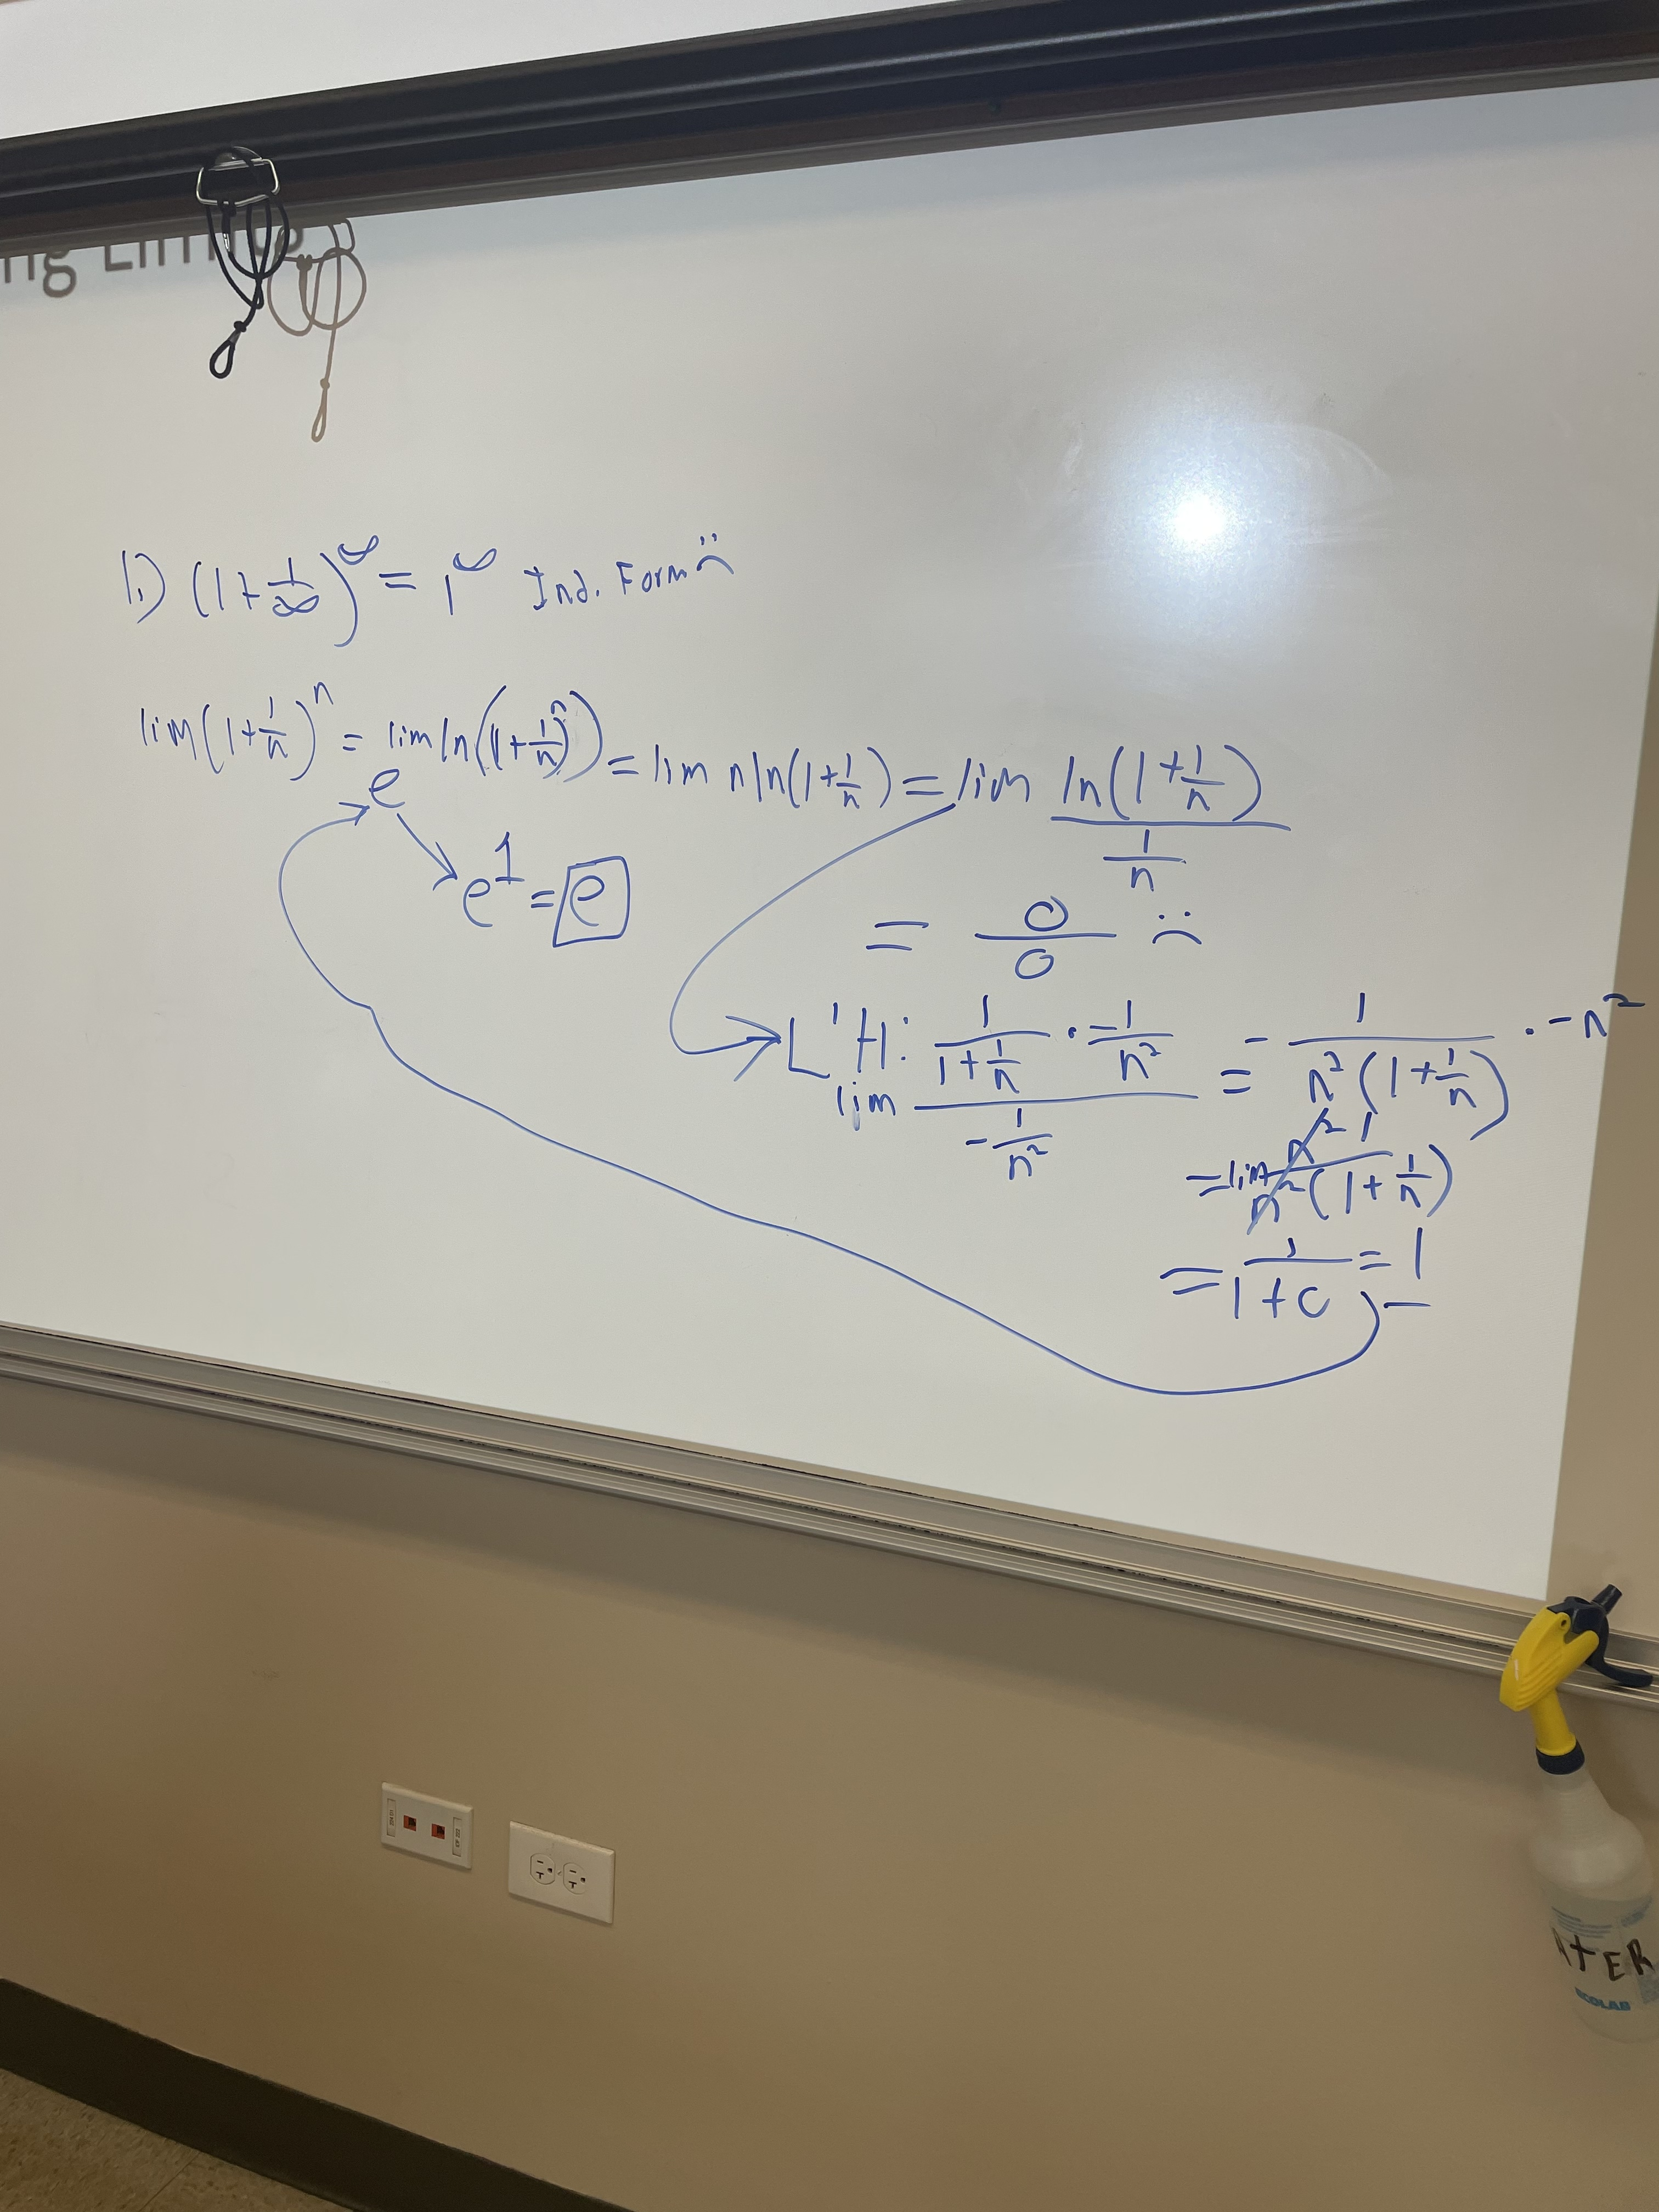 ng Lim
1.) (1+1/∞)^∞ = 1^∞ Ind. Form ☹
lim(1+1/n)^n = lim ln((1+1/n)^n) = lim n ln(1+1/n) = lim ln(1+1/n)/(1/n)
e
e^1 = e
= 0/0 ☹
L'H: lim (1/(1+1/n) · -1/n²)/(-1/n²) = -1/(n²(1+1/n)) · -n²
= lim n² 1/(n²(1+1/n))
= 1/(1+0) = 1
ATER
ECOLAB